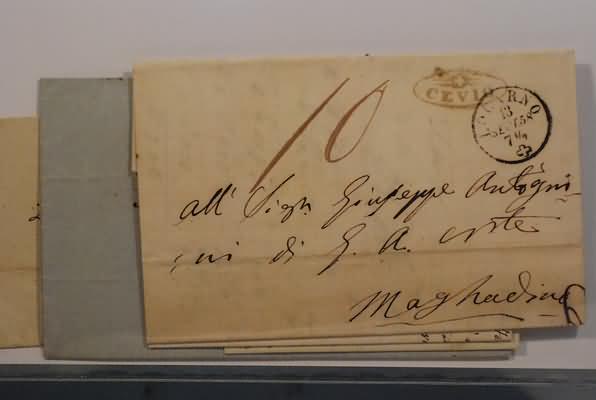 CEVIO
LOCARNO
13
58
10
all' Sigr. Giuseppe Antogni-
ni di G. A. oste
Maghadino